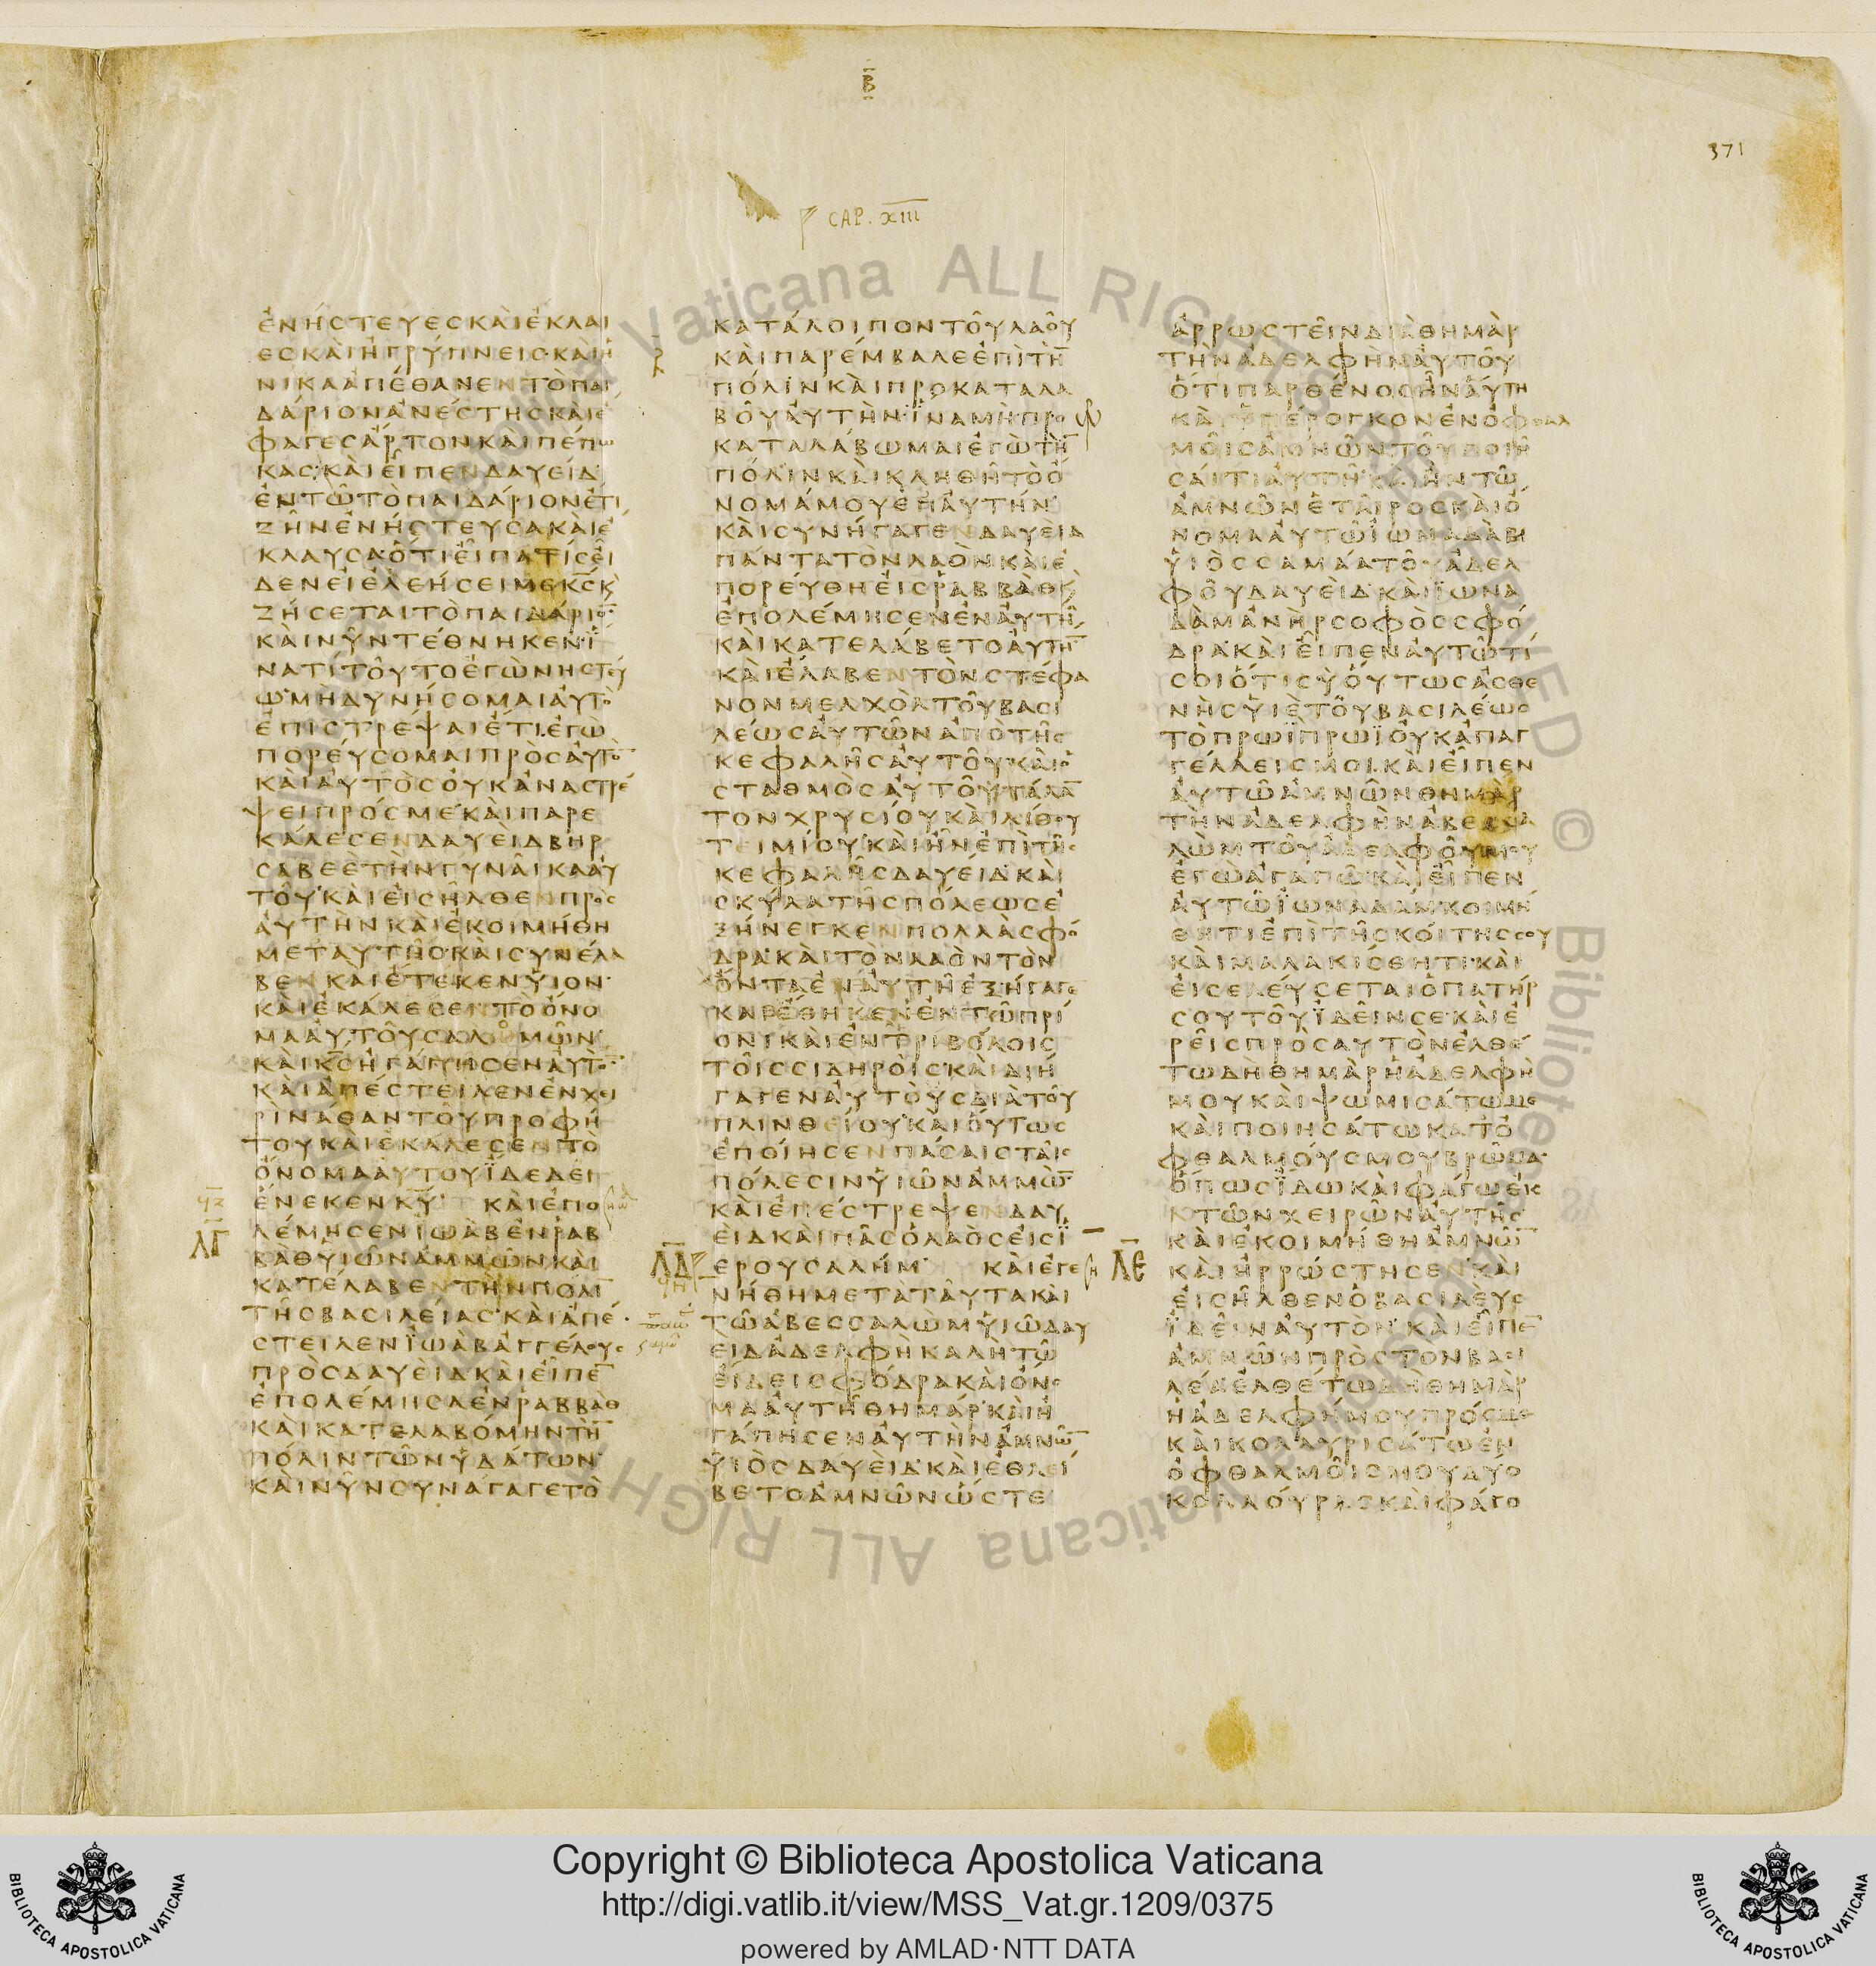 Β
371
CAP. XIII
ἐνήστευες καὶ ἔκλαι
ες καὶ ἠγρύπνεις· καὶ ἡ
νίκα ἀπέθανεν τὸ παι
δάριον ἀνέστης καὶ ἔ
φαγες ἄρτον καὶ πέπω
κας· καὶ εἶπεν Δαυείδ
ἐν τῷ τὸ παιδάριον ἔτι
ζῆν ἐνήστευσα καὶ ἔ
κλαυσα· ὅτι εἶπα τίς οἶ
δεν εἰ ἐλεήσει με κς κ
ζήσεται τὸ παιδάριο
καὶ νῦν τέθνηκεν· ἵ
να τί τοῦτο ἐγὼ νηστεύ
ω· μὴ δυνήσομαι αὐτὸ
ἐπιστρέψαι ἔτι· ἐγὼ
πορεύσομαι πρὸς αὐτὸ
καὶ αὐτὸς οὐκ ἀναστρέ
ψει πρός με· καὶ παρε
κάλεσεν Δαυεὶδ Βηρ
σάβεε τὴν γυναῖκα αὐ
τοῦ· καὶ εἰσῆλθεν πρὸς
αὐτὴν καὶ ἐκοιμήθη
μετ αὐτῆς· καὶ συνέλα
βεν καὶ ἔτεκεν υἱόν·
καὶ ἐκάλεσεν τὸ ὄνο
μα αὐτοῦ Σαλομών·
καὶ κς ἠγάπησεν αὐτό
καὶ ἀπέστειλεν ἐν χει
ρὶ Ναθὰν τοῦ προφή
του καὶ ἐκάλεσεν τὸ
ὄνομα αὐτοῦ Ἰδεδεί
ἕνεκεν κυ καὶ ἐπο
λέμησεν Ἰωὰβ ἐν Ῥαβ
βὰθ υἱῶν Ἀμμὼν καὶ
κατέλαβεν τὴν πόλι
τῆς βασιλείας· καὶ ἀπέ
στειλεν Ἰωὰβ ἀγγέλους
πρὸς Δαυεὶδ καὶ εἶπε
ἐπολέμησα ἐν Ῥαββὰθ
καὶ κατελαβόμην τὴ
πόλιν τῶν ὑδάτων·
καὶ νῦν συνάγαγε τὸ
ΛΓ
κατάλοιπον τοῦ λαοῦ
καὶ παρέμβαλε ἐπὶ τὴ
πόλιν καὶ προκαταλα
βοῦ αὐτήν· ἵνα μὴ προ
καταλάβωμαι ἐγὼ τὴ
πόλιν καὶ κληθῇ τὸ ὄ
νομά μου ἐπ αὐτήν·
καὶ συνήγαγεν Δαυεὶδ
πάντα τὸν λαὸν καὶ ἐ
πορεύθη εἰς Ῥαββὰθ κ
ἐπολέμησεν ἐν αὐτῇ
καὶ κατελάβετο αὐτή
καὶ ἔλαβεν τὸν στέφα
νον Μελχὸλ τοῦ βασι
λέως αὐτῶν ἀπὸ τῆς
κεφαλῆς αὐτοῦ· καὶ ὁ
σταθμὸς αὐτοῦ τάλα
τον χρυσίου καὶ λίθου
τειμίου· καὶ ἦν ἐπὶ τῆς
κεφαλῆς Δαυείδ· καὶ
σκῦλα τῆς πόλεως ἐ
ξήνεγκεν πολλὰ σφό
δρα· καὶ τὸν λαὸν τὸν
ὄντα ἐν αὐτῇ ἐξήγαγε
καὶ ἔθηκεν ἐν τῷ πρί
ονι καὶ ἐν τριβόλοις
τοῖς σιδηροῖς· καὶ διή
γαγεν αὐτοὺς διὰ τοῦ
πλινθείου· καὶ οὕτως
ἐποίησεν πάσαις ταῖς
πόλεσιν υἱῶν Ἀμμώ
καὶ ἐπέστρεψεν Δαυ
εὶδ καὶ πᾶς ὁ λαὸς εἰς Ἰ
ερουσαλήμ· καὶ ἐγε
νήθη μετὰ ταῦτα καὶ
τῷ Ἀβεσσαλὼμ υἱῷ Δαυ
εὶδ ἀδελφὴ καλὴ τῷ
εἴδει σφόδρα καὶ ὄνο
μα αὐτῇ Θημάρ· καὶ ἠ
γάπησεν αὐτὴν Ἀμνὼ
υἱὸς Δαυείδ· καὶ ἐθλεί
βετο Ἀμνὼν ὥστε
ΛΔ
ἀρρωστεῖν διὰ Θημὰρ
τὴν ἀδελφὴν αὐτοῦ
ὅτι παρθένος ἦν αὕτη
καὶ ὑπέρογκον ἐν ὀφθαλ
μοῖς Ἀμνὼν τοῦ ποιῆ
σαί τι αὐτῇ· καὶ ἦν τῷ
Ἀμνὼν ἑταῖρος καὶ ὄ
νομα αὐτῷ Ἰωναδὰβ
υἱὸς Σαμαὰ τοῦ ἀδελ
φοῦ Δαυείδ· καὶ Ἰωνα
δὰμ ἀνὴρ σοφὸς σφό
δρα· καὶ εἶπεν αὐτῷ τί
σοι ὅτι σὺ οὕτως ἀσθε
νὴς υἱὲ τοῦ βασιλέως
τὸ πρωῒ πρωΐ οὐκ ἀπαγ
γέλλεις μοι· καὶ εἶπεν
αὐτῷ Ἀμνὼν Θημὰρ
τὴν ἀδελφὴν Ἀβεσσα
λὼμ τοῦ ἀδελφοῦ μου
ἐγὼ ἀγαπῶ· καὶ εἶπεν
αὐτῷ Ἰωναδάμ κοιμή
θητι ἐπὶ τῆς κοίτης σου
καὶ μαλακίσθητι· καὶ
εἰσελεύσεται ὁ πατήρ
σου τοῦ ἰδεῖν σε· καὶ ἐ
ρεῖς πρὸς αὐτὸν ἐλθέ
τω δὴ Θημὰρ ἡ ἀδελφή
μου καὶ ψωμισάτω με
καὶ ποιησάτω κατ ὀ
φθαλμούς μου βρῶμα·
ὅπως ἴδω καὶ φάγω ἐκ
τῶν χειρῶν αὐτῆς
καὶ ἐκοιμήθη Ἀμνὼ
καὶ ἠρρώστησεν· καὶ
εἰσῆλθεν ὁ βασιλεὺς
ἰδεῖν αὐτόν· καὶ εἶπε
Ἀμνὼν πρὸς τὸν βασι
λέα ἐλθέτω δὴ Θημὰρ
ἡ ἀδελφή μου πρός με
καὶ κολλυρισάτω ἐν
ὀφθαλμοῖς μου δύο
κολλούρας καὶ φάγο
ΛΕ
Copyright © Biblioteca Apostolica Vaticana
http://digi.vatlib.it/view/MSS_Vat.gr.1209/0375
powered by AMLAD·NTT DATA
BIBLIOTECA APOSTOLICA VATICANA
BIBLIOTECA APOSTOLICA VATICANA